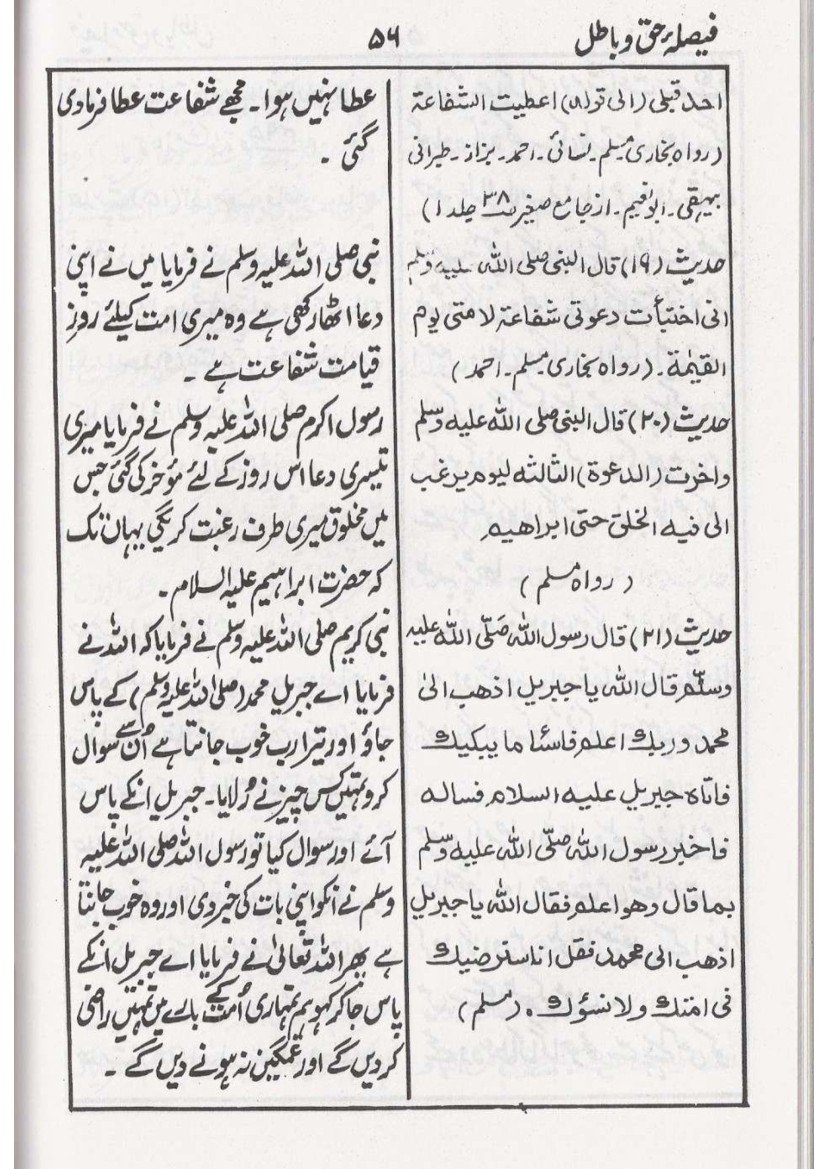 فیصلۂ حق و باطل
۵۶
احد قبلی (الی قولہ) اعطیت الشفاعة
(رواہ بخاری مسلم۔ نسائی۔ احمد۔ بزاز۔ طبرانی
بیہقی۔ ابونعیم۔ از جامع صغیر ص ۳۸ جلد ۱)
حدیث (۱۹) قال النبی صلی اللہ علیہ وسلم
انی اختبأت دعوتی شفاعة لامتی یوم
القیٰمة۔ (رواہ بخاری مسلم۔ احمد)
حدیث (۲۰) قال النبی صلی اللہ علیہ وسلم
واخرت (الدعوة) الثالثہ لیوم یرغب
الی فیہ الخلق حتی ابراھیم
(رواہ مسلم)
حدیث (۲۱) قال رسول اللہ صَلّی اللہ علیہ
وسلّم قال اللہ یا جبریل اذھب الیٰ
محمد وربك اعلم فاسئا ما یبکیك
فاتاہ جبریل علیہ السلام فسالہ
فاخبر رسول اللہ صلّی اللہ علیہ وسلّم
بما قال وھو اعلم فقال اللہ یا جبریل
اذھب الی محمد فقل انا سنرضیك
فی امتك ولا نسؤك۔ (مسلم)
عطا نہیں ہوا۔ مجھے شفاعت عطا فرما دی
گئی۔
نبی صلی اللہ علیہ وسلم نے فرمایا میں نے اپنی
دعا اٹھا رکھی ہے وہ میری امت کیلئے روز
قیامت شفاعت ہے۔
رسول اکرم صلی اللہ علیہ وسلم نے فرمایا میری
تیسری دعا اس روز کے لئے مؤخر کی گئی جس
میں مخلوق میری طرف رغبت کریگی یہاں تک
کہ حضرت ابراہیم علیہ السلام۔
نبی کریم صلی اللہ علیہ وسلم نے فرمایا کہ اللہ نے
فرمایا اے جبریل محمد (صلی اللہ علیہ وسلم) کے پاس
جاؤ اور تیرا رب خوب جانتا ہے اُن سے سوال
کرو تمہیں کس چیز نے رُلایا۔ جبریل انکے پاس
آئے اور سوال کیا تو رسول اللہ صلی اللہ علیہ
وسلم نے انکو اپنی بات کی خبر دی اور وہ خوب جانتا
ہے پھر اللہ تعالیٰ نے فرمایا اے جبریل انکے
پاس جا کر کہو ہم تمہاری اُمت کے بارے میں تمہیں راضی
کر دیں گے اور غمگین نہ ہونے دیں گے۔